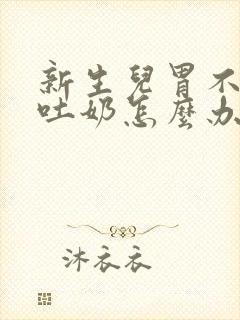 新生兒胃不
吐奶怎麼办
沐衣衣